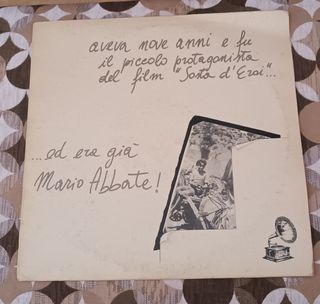 aveva nove anni e fu
il piccolo protagonista
del film "Sosta d'Eroi"...
...ed era già
Mario Abbate!